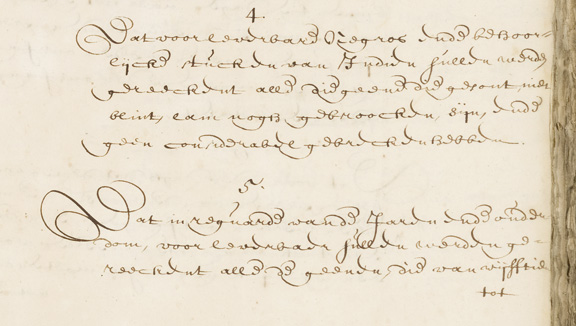 4.
Dat voor leverbare Negros ende behoor-
lycke stucken van Indien sullen werden
gereeckent alle diegeene die gesont, niet
blint, lam nogh gebroocken, sijn, ende
geen considerabel gebrecken hebben.
5.
Dat in reguarde van de Jaren ende ouder
dom, voor leverbaer sullen werden ge-
reeckent alle de geenen, die van vijfftien
tot